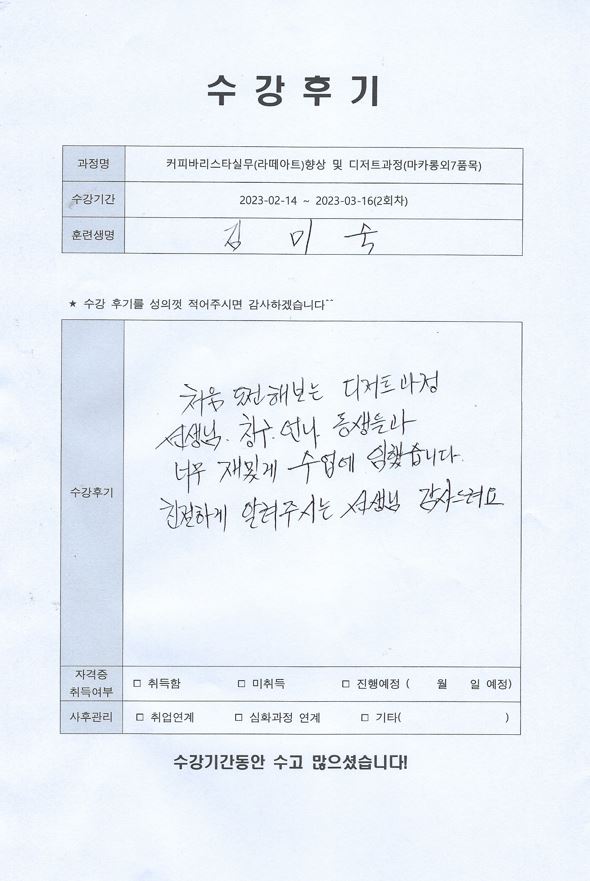 수 강 후 기
과정명 커피바리스타실무(라떼아트)향상 및 디저트과정(마카롱외7품목)
수강기간 2023-02-14 ~ 2023-03-16(2회차)
훈련생명 김 미 숙
★ 수강 후기를 성의껏 적어주시면 감사하겠습니다^^
처음 도전해보는 디저트과정
선생님. 친구. 언니. 동생들과
너무 재밌게 수업에 임했습니다.
수강후기
친절하게 알려주시는 선생님 감사드려요
자격증
취득여부 □ 취득함 □ 미취득 □ 진행예정 ( 월 일 예정)
사후관리 □ 취업연계 □ 심화과정 연계 □ 기타( )
수강기간동안 수고 많으셨습니다!